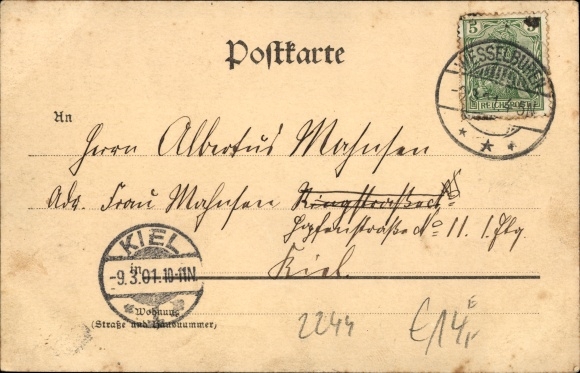 Postkarte
5 5
REICHSPOST
WESSELBUREN
An
Herrn Albertus Mahnsen
Adr. Frau Mahnsen Ringstraße
Hopfenstraße No 11. I. Etg.
Kiel.
KIEL
-9.3.01.10-11N.
1
in
Wohnung
(Straße und Hausnummer)
2244
€14,-